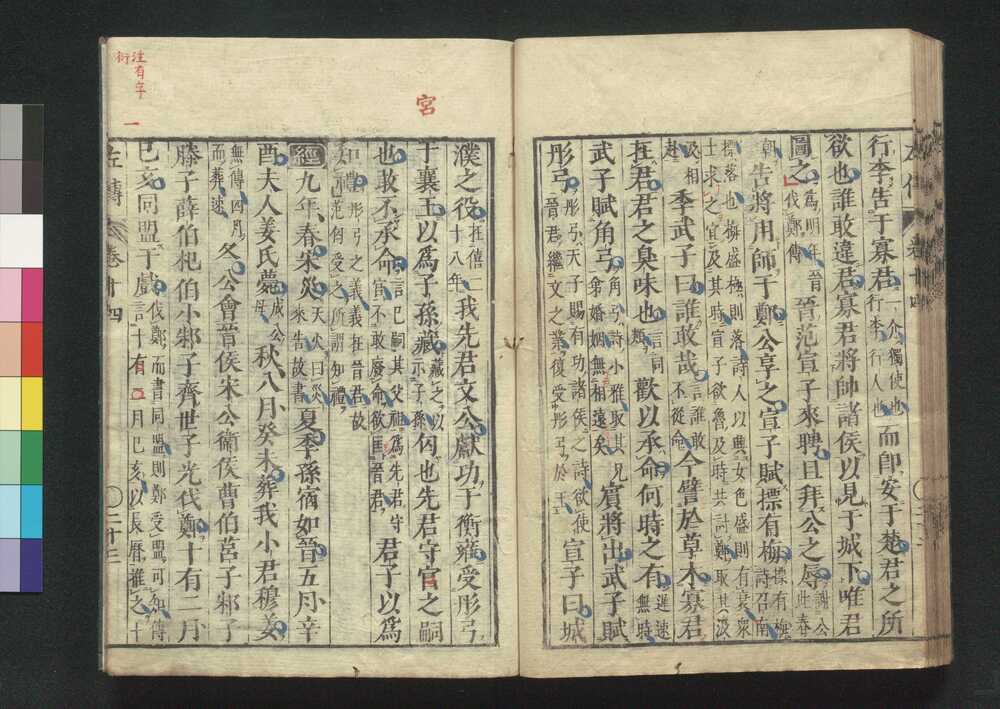 行李告于寡君一介獨使也行李行人也而即安于楚君之所
欲也誰敢違君寡君將帥諸侯以見于城下唯君
圖之為明年晉伐鄭傳晉范宣子來聘且拜公之辱謝公此春
朝告將用師于鄭公享之宣子賦摽有梅摽有梅詩召南
摽落也梅盛極則落詩人以興女色盛則有衰眾
士求之宜及其時宣子欲魯及時共討鄭取其汲
汲相赴季武子曰誰敢哉言誰敢不從命今譬於草木寡君
在君君之臭味也言同類歡以承命何時之有遲速無時
武子賦角弓角弓詩小雅取其兄弟婚姻無相遠矣賓將出武子賦
彤弓彤弓天子賜有功諸侯之詩欲使晉君繼文之業復受彤弓於王宣子曰城
宮
濮之役在僖二十八年我先君文公獻功于衡雍受彤弓
于襄王以爲子孫藏藏之以示子孫匄也先君守官之嗣
也敢不承命言己嗣其父祖爲先君守官不敢廢命欲匡晉君君子以爲
知禮彤弓之義義在晉君故匄受之所謂知禮
經九年春宋災天火曰災來告故書夏季孫宿如晉五月辛
酉夫人姜氏薨成公母秋八月癸未葬我小君穆姜
無傳四月而葬速冬公會晉侯宋公衛侯曹伯莒子邾子
滕子薛伯杞伯小邾子齊世子光伐鄭十有二月
己亥同盟于戲伐鄭而書同盟則鄭受盟可知傳
言十有二月己亥以長曆推之十
左傳 卷十四 二十三